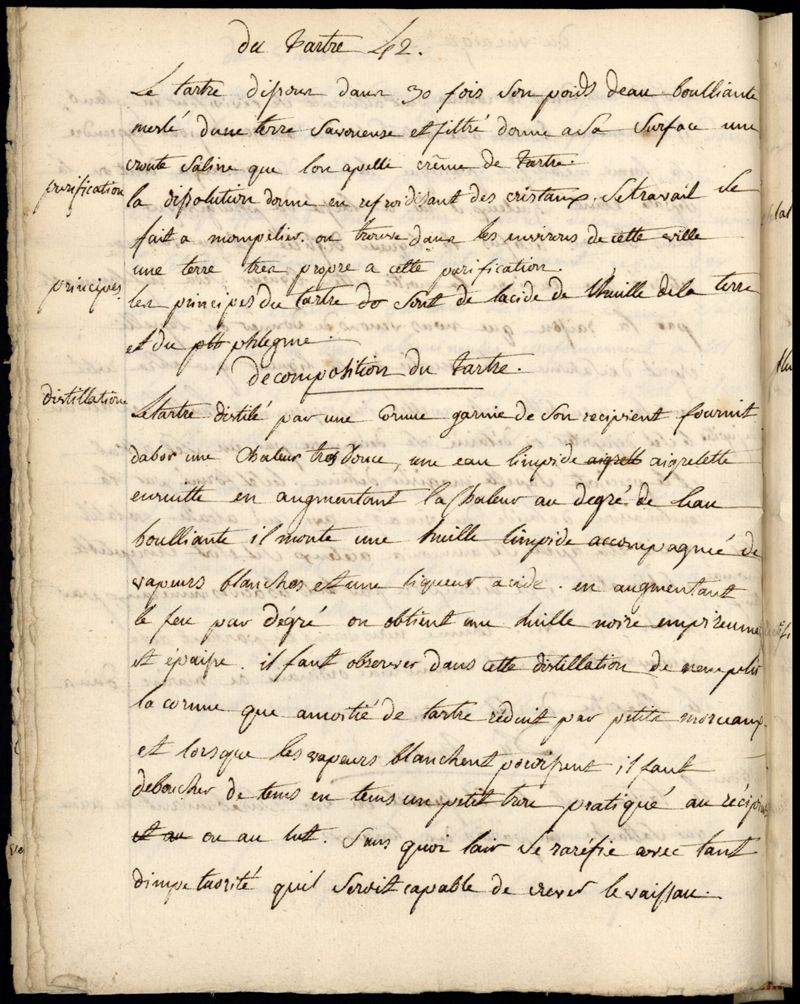 du tartre 42.
Le tartre dissous dans 30 fois son poids deau boulliante
meslé dune terre savoneuse et filtré donne a sa surface une
croute saline que lon apelle crême de tartre.
purification
la dissolution donne en refroidisant des cristaux, se travail se
fait a monpelier. on trouve dans les environs de cette ville
une terre tres propre a cette purification.
principes.
les principes du tartre sont de lacide de lhuille de la terre
et du phlegme.
decomposition du tartre.
distillation
Le tartre distilé par une cornue garnie de son recipient fournit
dabor une chaleur tres douce, une eau limpide aigrelette
ensuitte en augmentant la chaleur au degré de leau
boulliante il monte une huille limpide accompagnié de
vapeurs blanches et une liqueur acide. en augmentant
le feu par dégré on obtient une huille noire empireume
et épaisse. il faut observer dans cette distillation de nemplir
la cornue que amoitié de tartre réduit par petits morceaux.
et lorsque les vapeurs blanchent il faut
deboucher de tems en tems un petit trou pratiqué au récipient
et au ou au lut. sans quoi lair se raréfie avec tant
dimpetuosité quil seroit capable de crever le vaissau.